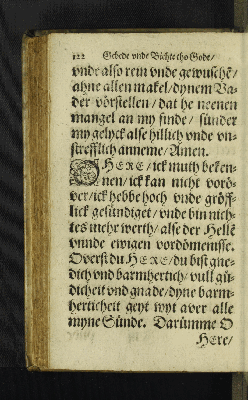 122 Gebede vnde Bichte tho Gode/
vnde also rein vnde gewuschē/
ahne allen makel/ dynem Va-
der vörstellen/ dat he neenen
mangel an my finde/ sünder
my gelyck alse hillich vnde vn-
strefflich anneme/ Amen.
O HERE/ ick muth beken-
nen/ ick kan nicht vorö-
ver/ ick hebbe hoch vnde gröff-
lick gesündiget/ vnde bin nich-
tes mehr werth/ alse der Helle
vnnde ewigen vordömenisse.
Överst du HERE/ du bist gne-
dich vnd barmhertich/ vull gü-
dicheit vnd gnade/ dyne barm-
herticheit geyt wyt aver alle
myne Sünde. Darümme O
HEre/